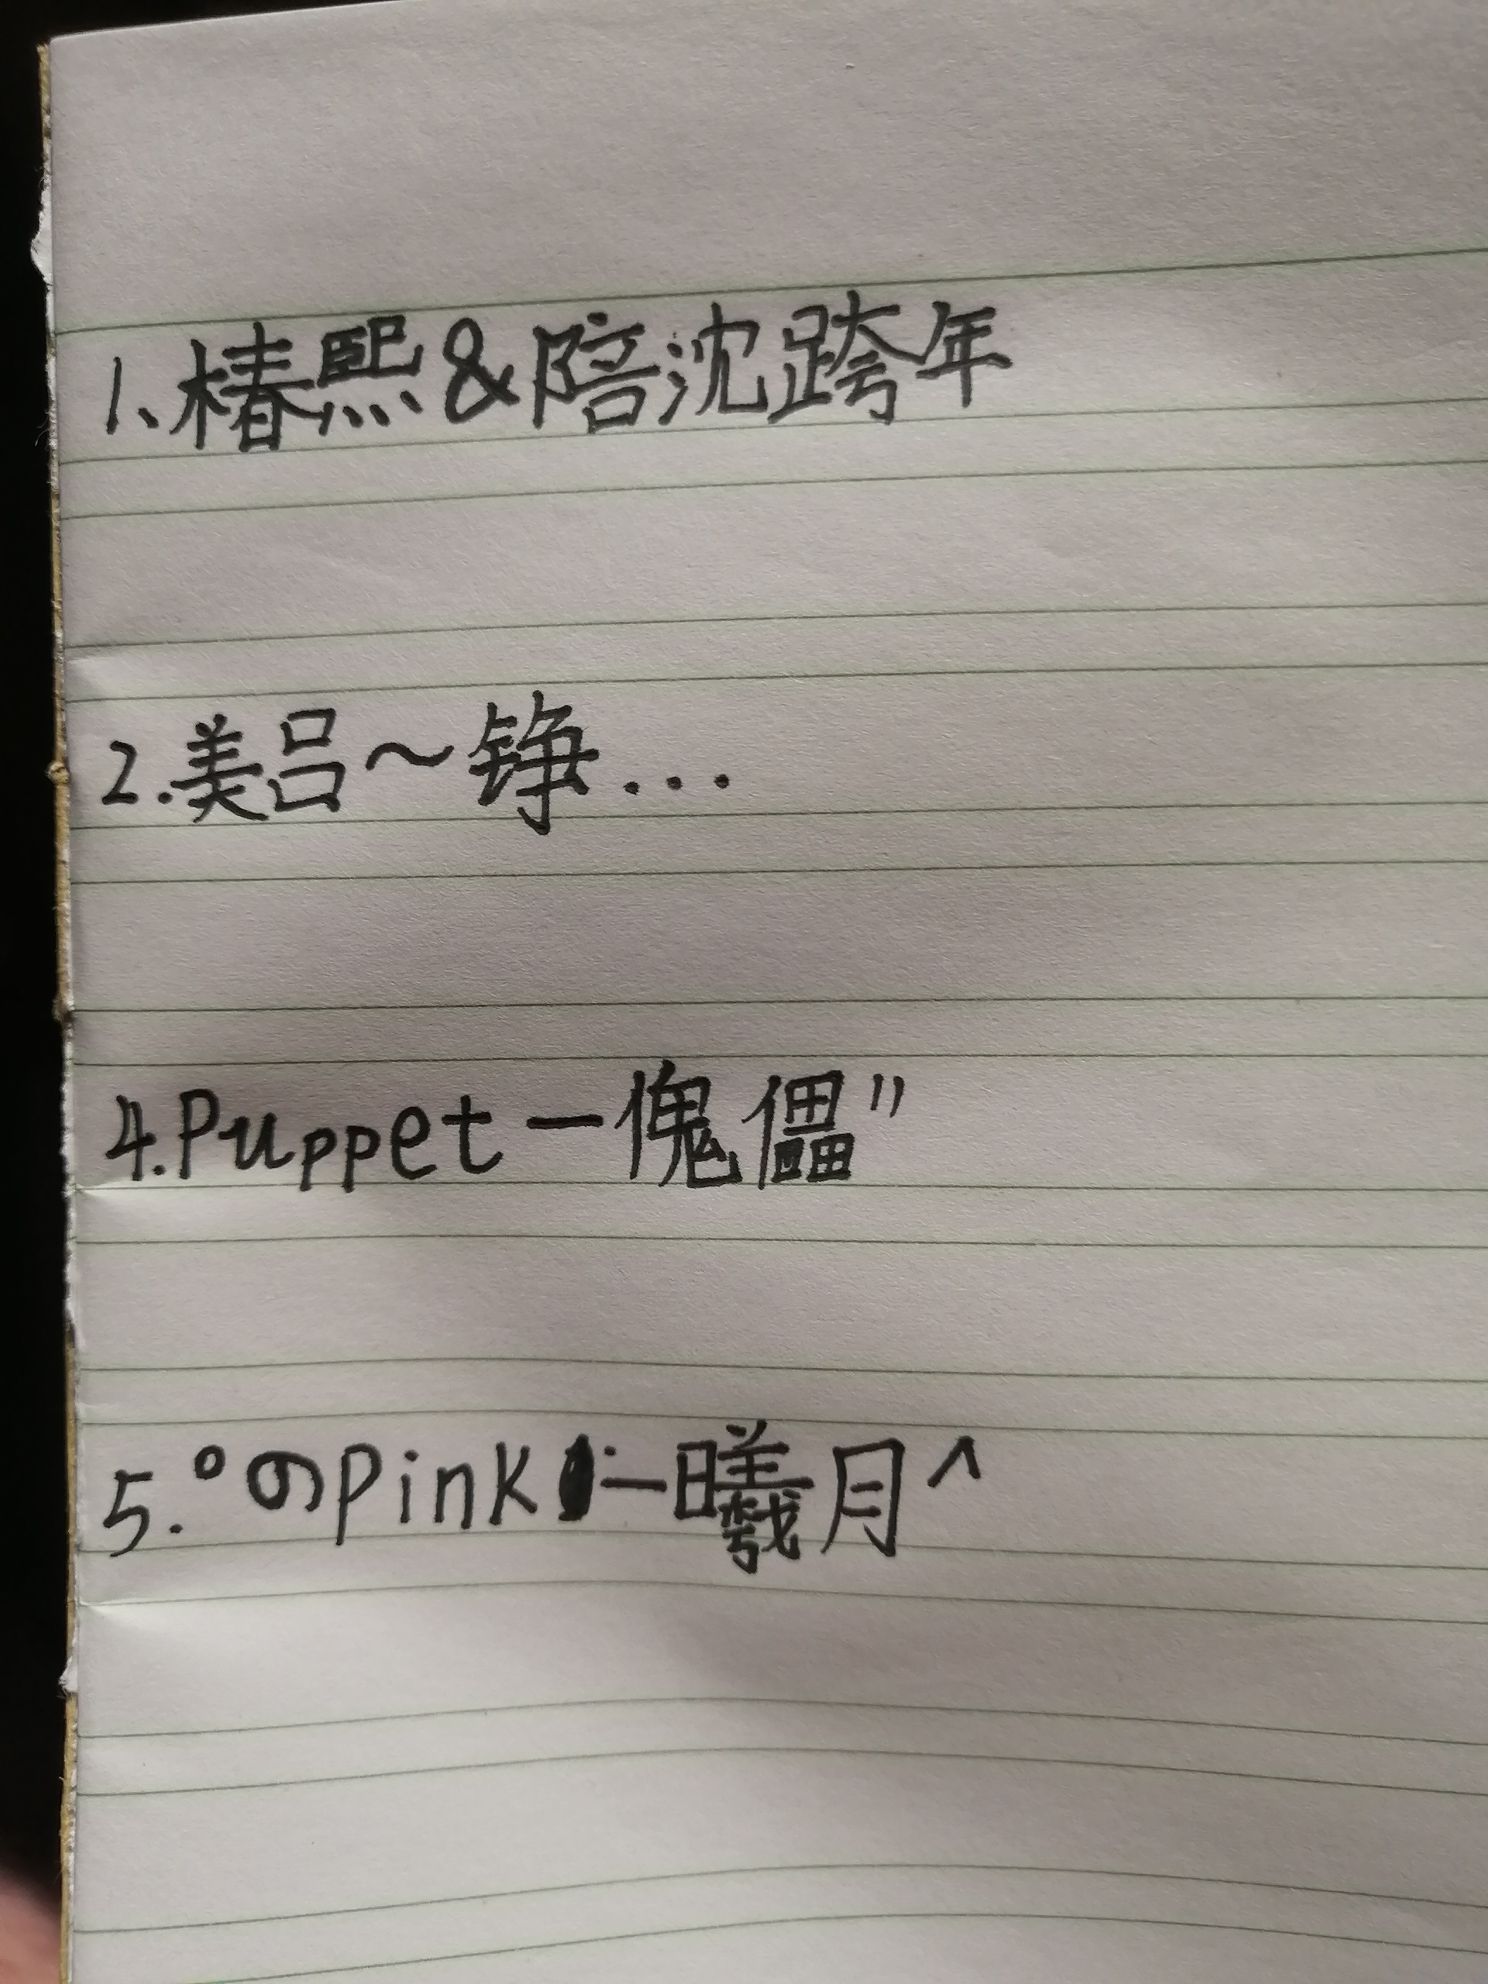 1、椿熙&陪沈跨年
2.美吕~铮...
4.Puppet一傀儡"
5.°のpink一曦月^